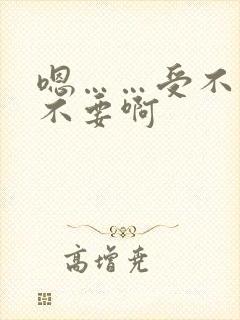 嗯……受不
不要啊
高增尧